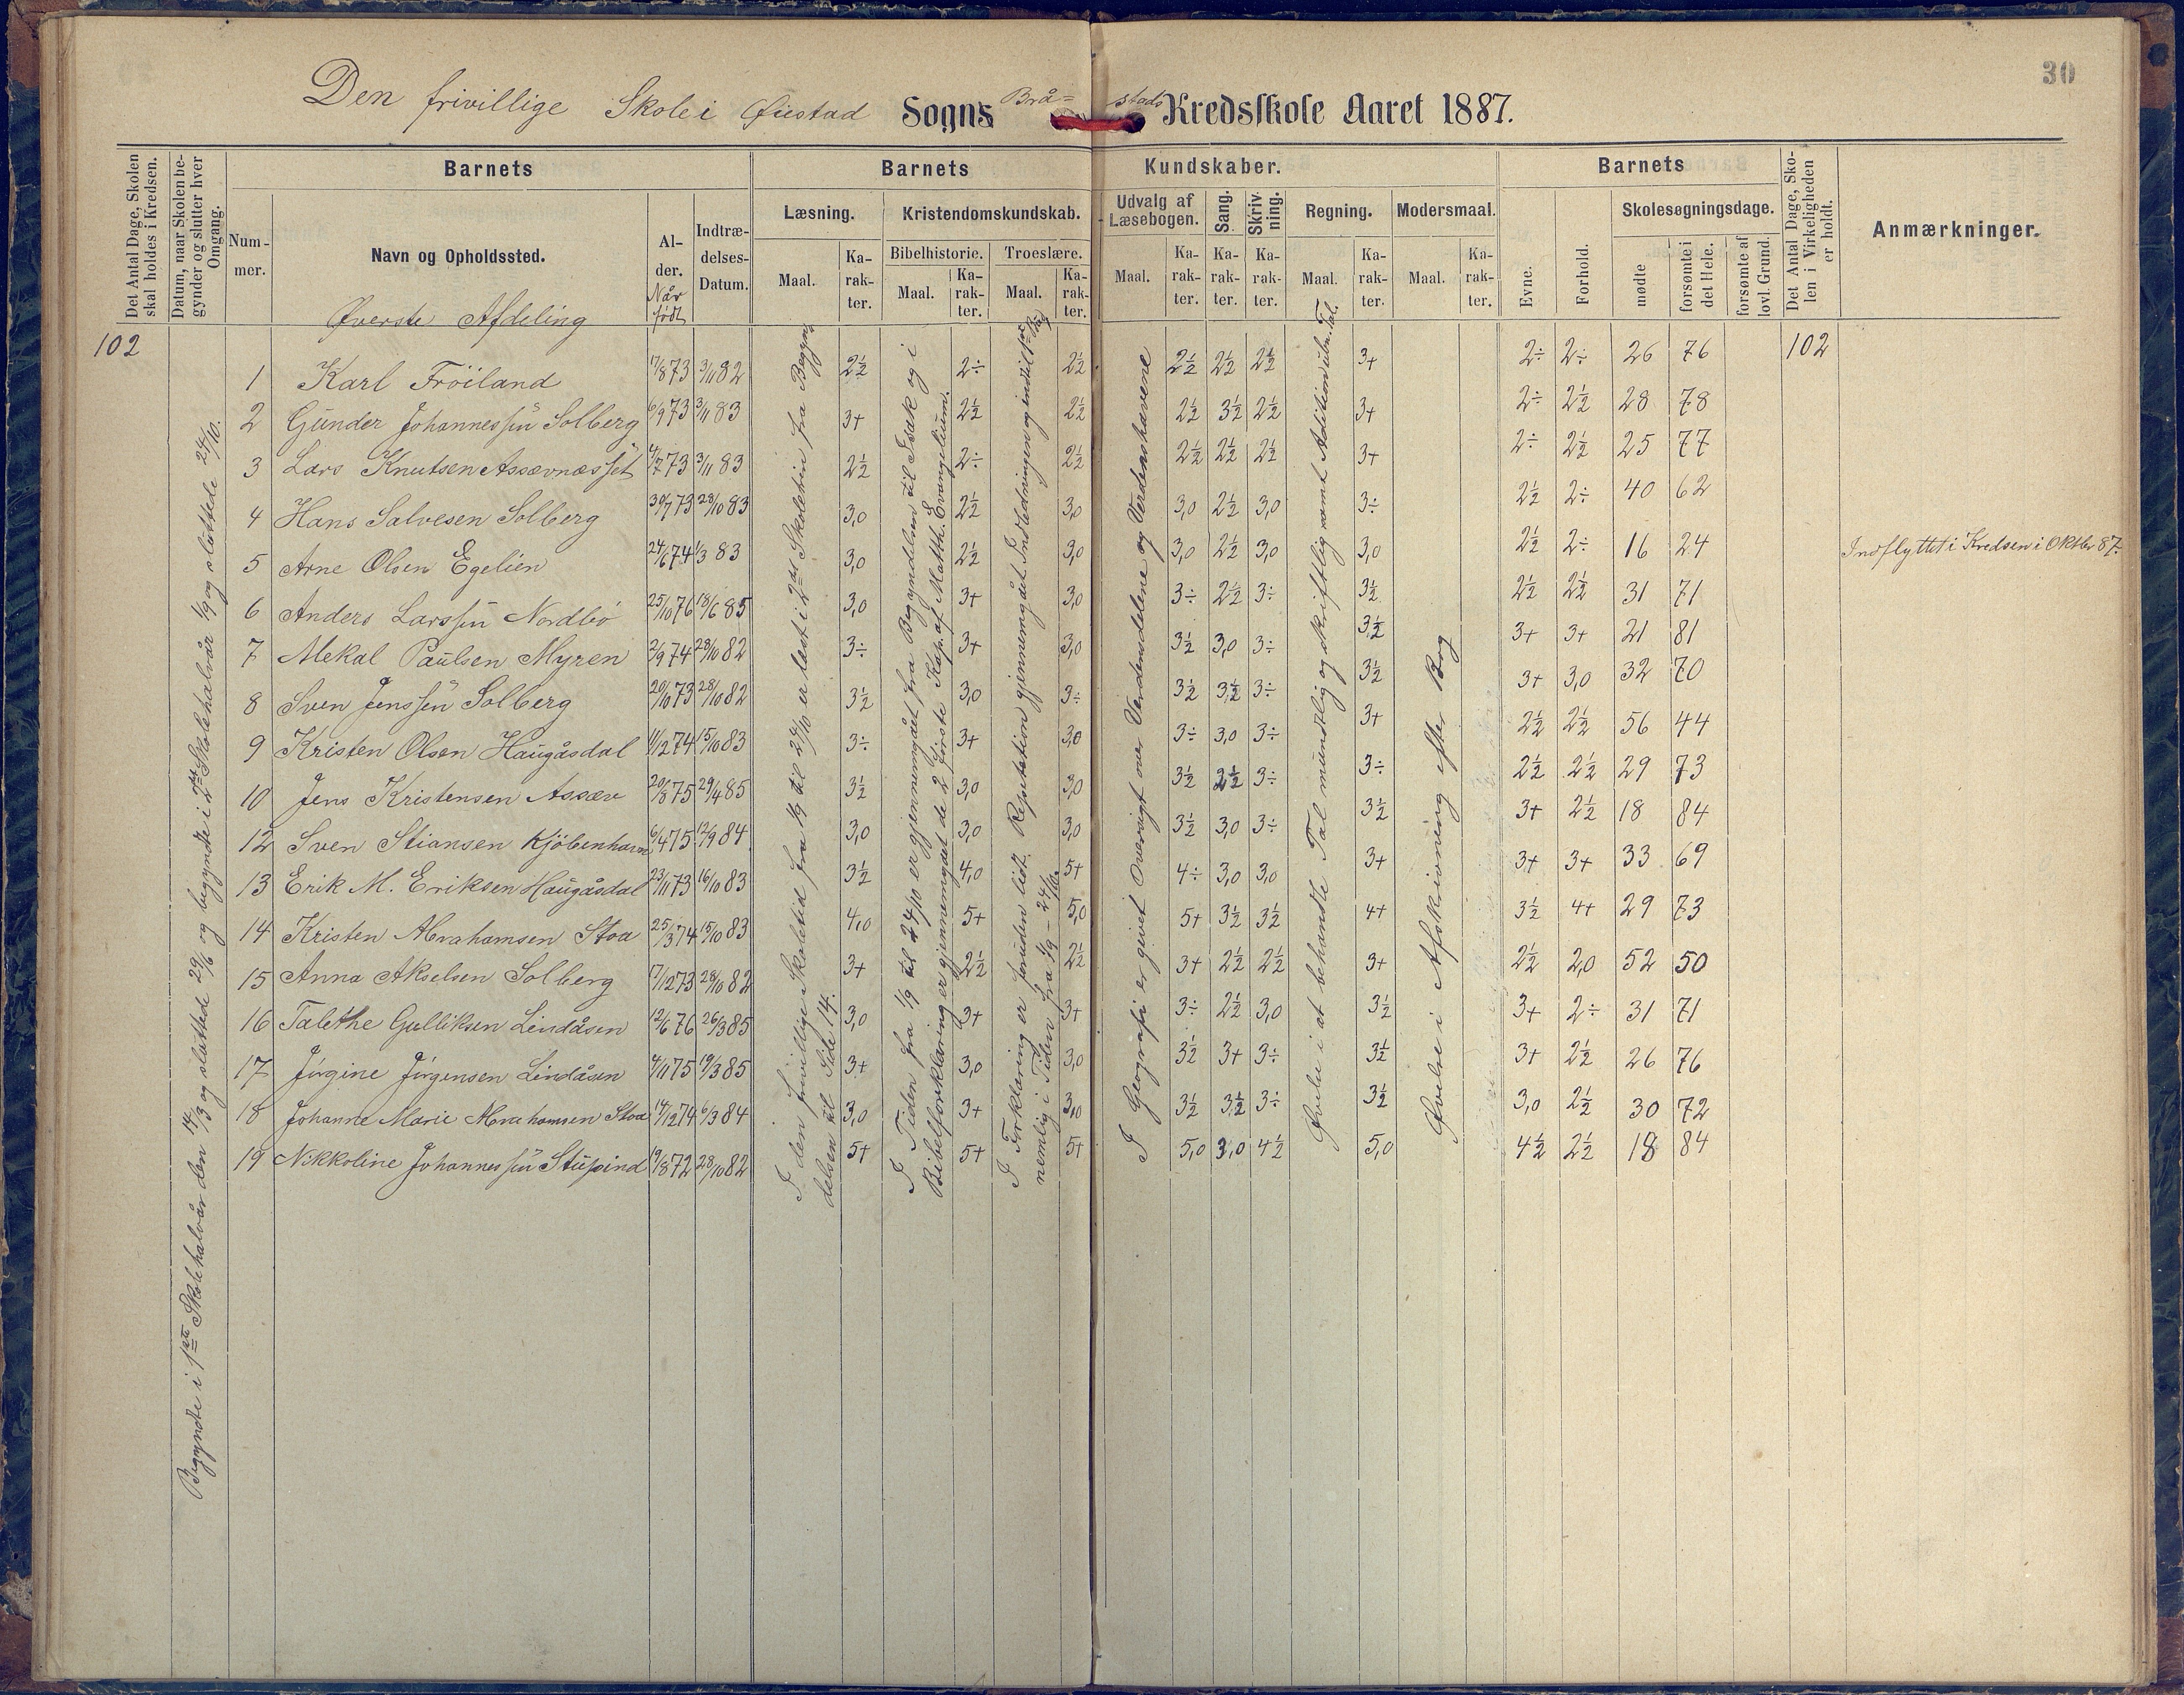 30
Den frivillige Skole i Øiestad Sogns Brå= stads Kredsskole Aaret 1887.
Det Antal Dage, Skolen skal holdes i Kredsen.
Datum, naar Skolen begynder og slutter hver Omgang.
Barnets
Nummer.
Navn og Opholdssted.
Alder. Når født
Indtrædelses-Datum.
Barnets Kundskaber.
Læsning.
Maal. Karakter.
Kristendomskundskab.
Bibelhistorie. Troeslære.
Maal. Karakter. Maal. Karakter.
Udvalg af Læsebogen.
Maal. Karakter.
Sang. Karakter.
Skrivning. Karakter.
Regning.
Maal. Karakter.
Modersmaal.
Maal. Karakter.
Barnets
Evne.
Forhold.
Skolesøgningsdage.
mødte
forsømte i det Hele.
forsømte af lovl. Grund.
Det Antal Dage, Skolen i Virkeligheden er holdt.
Anmærkninger.
Øverste Afdeling
102
102
Begyndte i 1ste Skolehalvår den 14/3 og sluttede 29/6 og begyndte i 2det Skolehalvår 1/9 og sluttede 24/10.
I den frivillige Skoletid fra 1/9 til 24/10 er læst i 2den Skoletrin fra Begyndelsen til Side 14.
I Tiden fra 1/9 til 24/10 er gjennemgået fra Begyndelsen til Esak og i
Bibelforklaring er gjennemgået de 2 første Kap. af Matth. Evangelium.
I Forklaring er foruden lidt Repetition gjennemgået Indledningen og indtil 1ste Bog
nemlig i Tiden fra 1/9 - 24/10.
I Geografi er givet Oversigt over Verdensdelene og Verdenshavene
Øvelse i at behandle Tal mundtlig og skriftlig samt Adition ubn. Tal.
Øvelse i Afskrivning efter Bog
1 Karl Fröiland 17/8 73 3/11 82 2½ 2÷ 2½ 2½ 2½ 2½ 3+ 2÷ 2÷ 26 76
2 Gunder Johannessen Solberg 6/9 73 3/11 83 3+ 2½ 2½ 2½ 3½ 2½ 3+ 2÷ 2½ 28 78
3 Lars Knutsen Assævnæsset 4/7 73 3/11 83 2½ 2÷ 2½ 2½ 2½ 2½ 3+ 2÷ 2½ 25 77
4 Hans Salvesen Solberg 30/7 73 28/10 83 3,0 2½ 3,0 3,0 2½ 3,0 3÷ 2½ 2÷ 40 62
5 Arne Olsen Egelien 24/6 74 1/3 83 3,0 2½ 3,0 3,0 2½ 3,0 3,0 2½ 2÷ 16 24 Indflyttet i Kredsen i Oktbr 87.
6 Anders Larssen Nordbö 25/10 76 18/6 85 3,0 3+ 3,0 3÷ 2½ 3÷ 3½ 2½ 2½ 31 71
7 Mekal Paulsen Myren 2/9 74 28/10 82 3÷ 3+ 3,0 3½ 3,0 3÷ 3½ 3+ 3+ 21 81
8 Sven Jenssen Solberg 20/10 73 28/10 82 3½ 3,0 3÷ 3½ 3½ 3÷ 3½ 3+ 3,0 32 70
9 Kristen Olsen Haugåsdal 11/2 74 15/10 83 3÷ 3+ 3,0 3÷ 3,0 3÷ 3+ 2½ 2½ 56 44
10 Jens Kristensen Assæv 20/8 75 29/4 85 3½ 3,0 3,0 3½ 2½ 3÷ 3÷ 2½ 2½ 29 73
12 Sven Stiansen Kjöbenhavn 6/4 75 12/9 84 3,0 3,0 3,0 3½ 3,0 3÷ 3½ 3+ 2½ 18 84
13 Erik M. Eriksen Haugåsdal 23/11 73 16/10 83 3½ 4,0 5+ 4÷ 3,0 3,0 3+ 3+ 3+ 33 69
14 Kristen Abrahamsen Stoa 25/3 74 15/10 83 4,0 5+ 5,0 5+ 3½ 3½ 4+ 3½ 4+ 29 73
15 Anna Akselsen Solberg 17/12 73 28/10 82 3+ 2½ 2½ 3+ 2½ 2½ 3+ 2½ 2,0 52 50
16 Talethe Gulliksen Lindåsen 12/6 76 26/3 85 3,0 3+ 3+ 3÷ 2½ 3,0 3½ 3+ 2÷ 31 71
17 Jörgine Jörgensen Lindåsen 4/11 75 19/3 85 3+ 3,0 3,0 3½ 3+ 3÷ 3½ 3+ 2½ 26 76
18 Johanne Marie Abrahamsen Stoa 14/12 74 6/3 84 3,0 3+ 3,0 3½ 3½ 3÷ 3½ 3,0 2½ 30 72
19 Nikkoline Johannessen Stupind 19/8 72 28/10 82 5+ 5+ 5+ 5,0 3,0 4½ 5,0 4½ 2½ 18 84